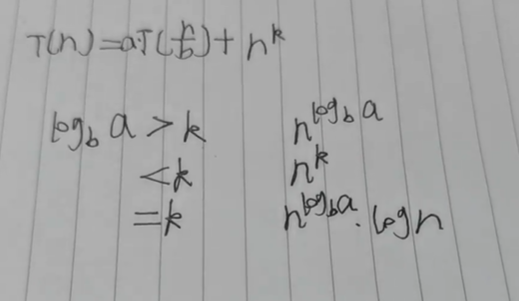 T(n)=aT(n/b)+n^k
log_b a > k n^{log_b a}
<k n^k
=k n^{log_b a}·log n